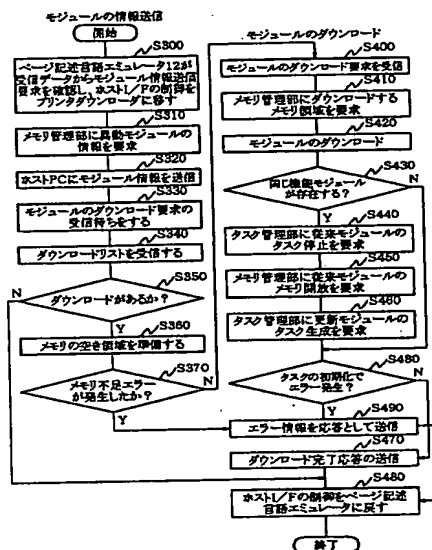 モジュールの情報送信
開始
S300
ページ記述言語エミュレータ12が
受信データからモジュール情報送信
要求を確認し、ホストI/Fの制御を
プリンタダウンローダに移す
S310
メモリ管理部に異動モジュールの
情報を要求
S320
ホストPCにモジュール情報を送信
S330
モジュールのダウンロード要求の
受信待ちをする
S340
ダウンロードリストを受信する
S350
ダウンロードがあるか?
N
Y
S360
メモリの空き領域を準備する
S370
メモリ不足エラー
が発生したか?
N
Y
モジュールのダウンロード
S400
モジュールのダウンロード要求を受信
S410
メモリ管理部にダウンロードする
メモリ領域を要求
S420
モジュールのダウンロード
S430
同じ機能モジュール
が存在する?
N
Y
S440
タスク管理部に従来モジュールの
タスク停止を要求
S450
メモリ管理部に従来モジュールの
メモリ開放を要求
S460
タスク管理部に更新モジュールの
タスク生成を要求
S480
タスクの初期化で
エラー発生?
N
Y
S490
エラー情報を応答として送信
S470
ダウンロード完了応答の送信
S480
ホストI/Fの制御をページ記述
言語エミュレータに戻す
終了